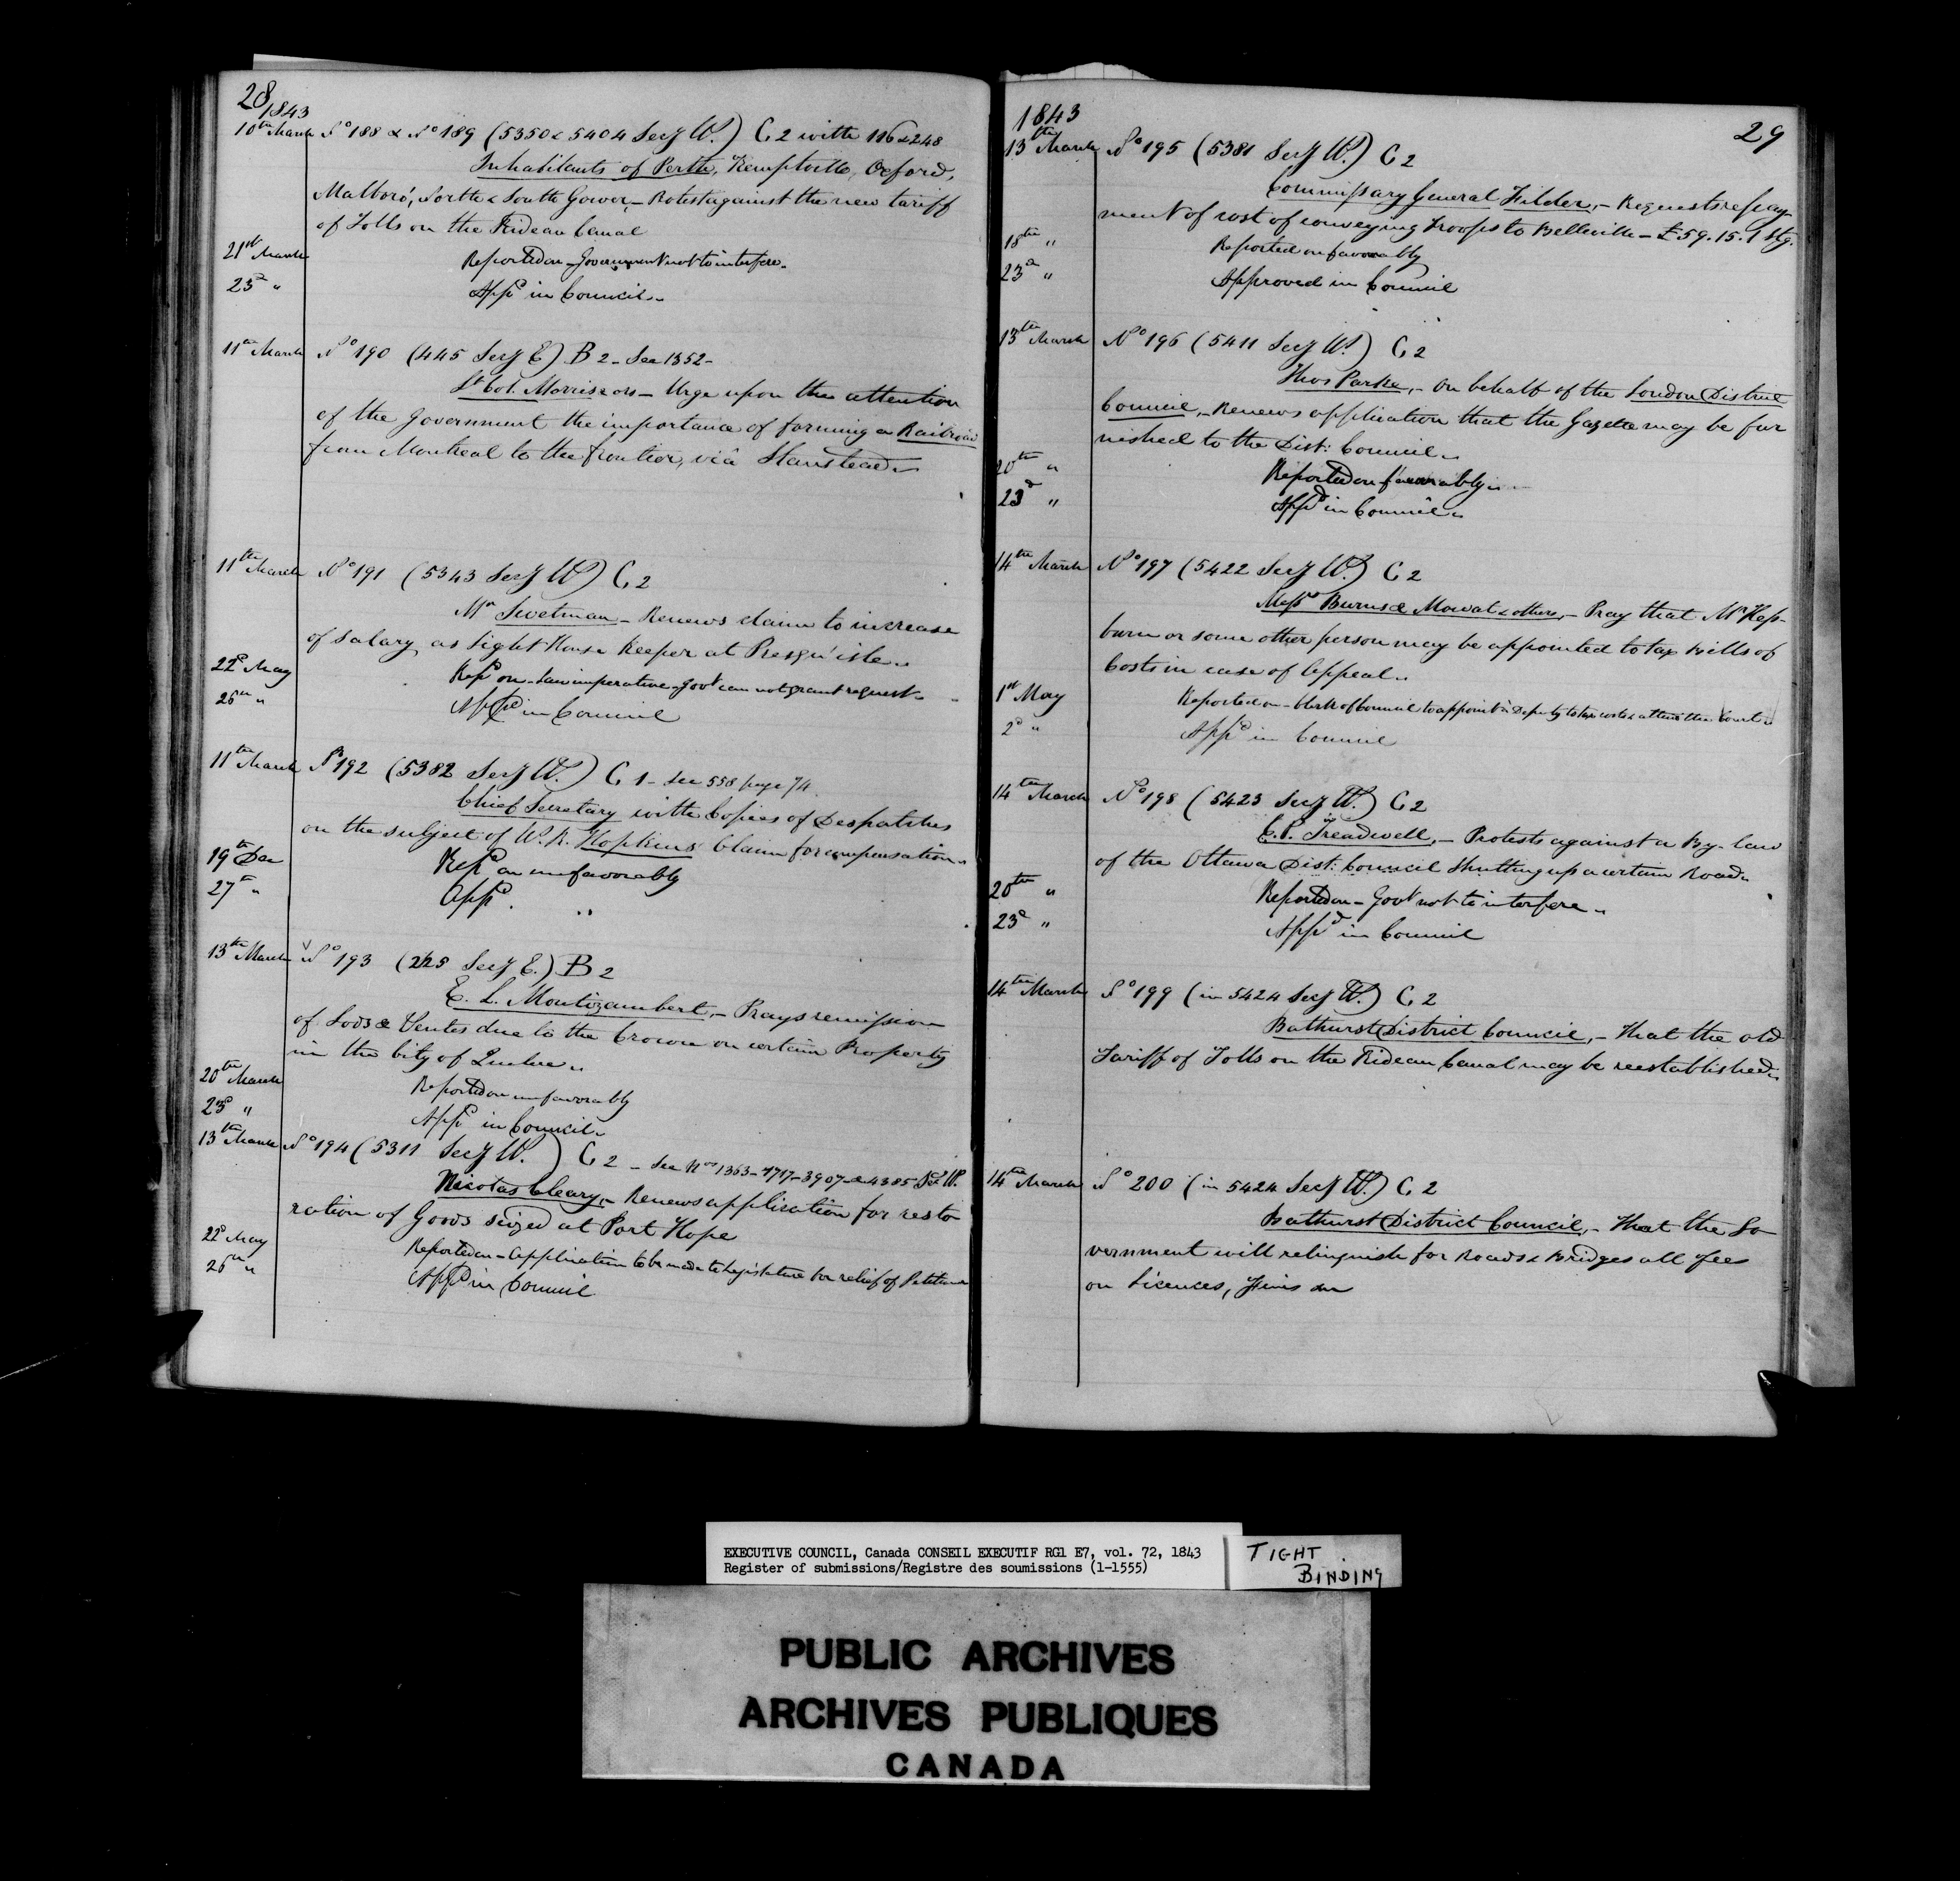 28
1843
10th March No 188 & No 189 (5350 & 5404 Secy W.) C 2 with 116 & 248
Inhabitants of Perth, Kemptville, Oxford,
Malboro', North & South Gower, - Protest against the new tariff
of Tolls on the Rideau Canal
21st March Reported on - Government not to interfere.
23d " Appd in Council.
11th March No 190 (445 Secy E) B 2 - See 1352 -
Lt Col. Morrison - Urge upon the attention
of the Government the importance of forming a Railroad
from Montreal to the frontier, viâ Stanstead
11th March No 191 (5343 Secy W) C 2
Mr Swetman - Renews claim to increase
of salary as Light House Keeper at Presqu'isle
22d May Repd on - Law imperative - Govt can not grant request
26th " Appd in Council
11th March No 192 (5382 Secy W.) C 1 - See 558 page 74
Chief Secretary with Copies of Despatches
on the subject of W. R. Hopkins' Claim for compensation
19th Dec Repd on unfavorably
27th " Appd.
13th March No 193 (225 Secy E.) B 2
E. L. Montizambert, - Prays remission
of Lods & Ventes due to the Crown on certain Property
in the City of Quebec
20th March Reported on unfavorably
23d " Appd in Council.
13th March No 194 (5311 Secy W.) C 2 - See Nos 1363 - 1717 - 3907 & 4385 Secy W.
Nicolas Cleary, - Renews application for resto
ration of Goods seized at Port Hope
22d May Reported on - Application to be made to Legislature for relief of Petitioner
26th " Appd in Council
1843
29
13th March No 195 (5381 Secy W.) C 2
Commissary General Filder, - Requests repay-
ment of cost of conveying Troops to Belleville - £59.15.1 Stg.
18th " Reported on favorably
23d " Approved in Council
13th March No 196 (5411 Secy W.) C 2
Thos Parke, - On behalf of the London District
Council, - Renews application that the Gazette may be fur
nished to the Dist: Council
20th " Reported on favorably
23d " Appd in Council
14th March No 197 (5422 Secy W.) C 2
Messrs Burns & Mowat & others, - Pray that Mr Hep-
burn or some other person may be appointed to tax Bills of
Costs in case of Appeal
1st May Reported on - Clerk of Council to appoint a Deputy to tax costs & attend the Court
2d " Appd in Council
14th March No 198 (5423 Secy W.) C 2
C. P. Treadwell, - Protests against a By-law
of the Ottawa Dist: Council shutting up a certain Road
20th " Reported on - Govt not to interfere
23d " Appd in Council
14th March No 199 (in 5424 Secy W.) C 2
Bathurst District Council, - That the old
Tariff of Tolls on the Rideau Canal may be reestablished
14th March No 200 (in 5424 Secy W.) C 2
Bathurst District Council, - That the Go
vernment will relinquish for Roads & Bridges all fees
on Licences, Fines &c
EXECUTIVE COUNCIL, Canada CONSEIL EXECUTIF RG1 E7, vol. 72, 1843
Register of submissions/Registre des soumissions (1-1555)
TIGHT
BINDING
PUBLIC ARCHIVES
ARCHIVES PUBLIQUES
CANADA